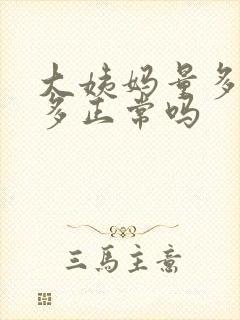 大姨妈量多
多正常吗
三馬主意